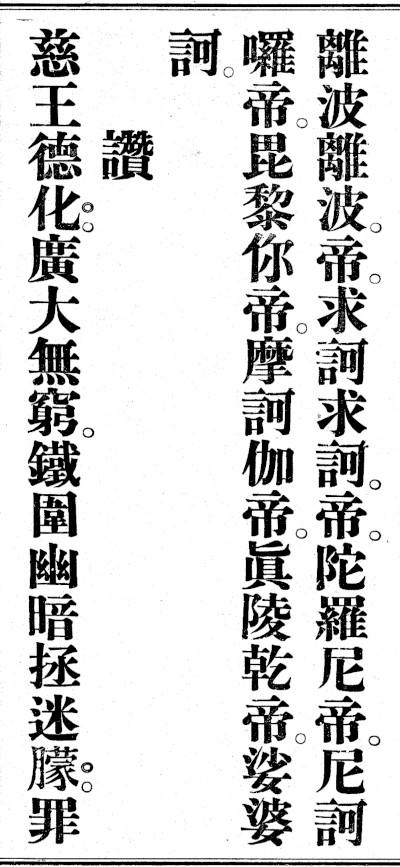 離波離波。帝。求訶求訶。帝。陀羅尼帝。尼訶
囉帝。毘黎你帝。摩訶伽帝。眞陵乾帝。娑婆
訶。
讚
慈王德化◎。廣大無窮。鐵圍幽暗拯迷朦◎。罪